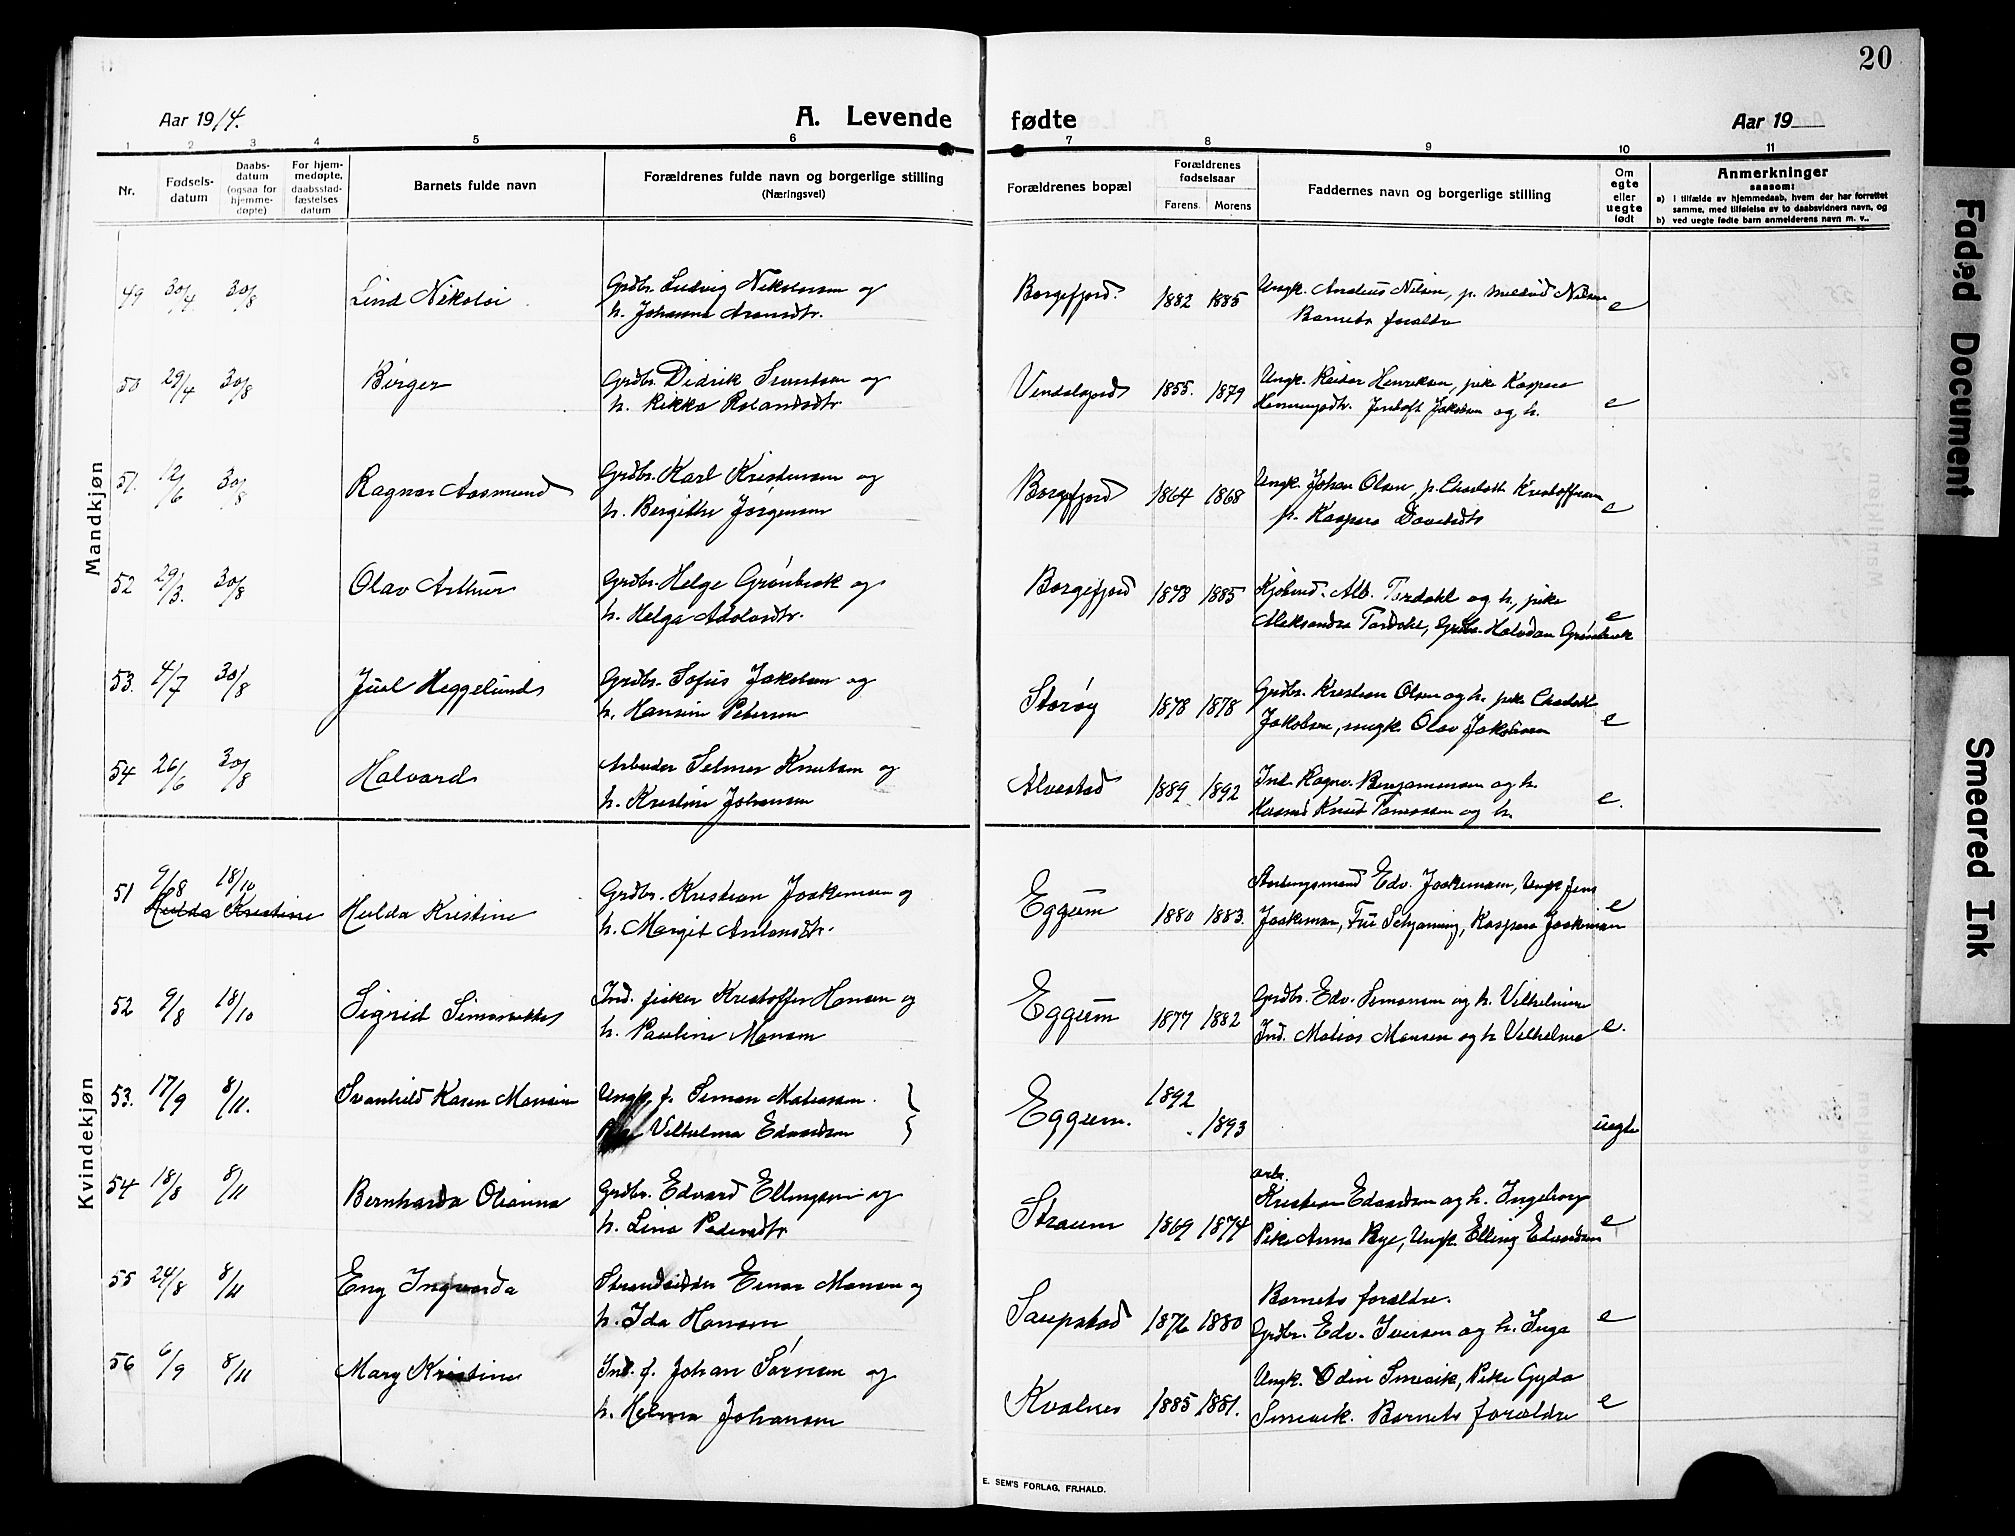 20
Aar 1914.
A. Levende fødte
Aar 19
1 2 3 4 5 6 7 8 9 10 11
Nr.
Fødsels-
datum
Daabs-
datum
(ogsaa for
hjemme-
døpte)
For hjem-
medøpte,
daabsstad-
fæstelses
datum
Barnets fulde navn
Forældrenes fulde navn og borgerlige stilling
(Næringsvei)
Forældrenes bopæl
Forældrenes
fødselsaar
Farens Morens
Faddernes navn og borgerlige stilling
Om
egte
eller
uegte
født
Anmerkninger
saasom:
a) i tilfælde av hjemmedaab, hvem der har forrettet
samme, med tilføielse av to daabsvidners navn, og
b) ved uegte fødte barn anmelderens navn m. v.
Mandkjøn
49 30/4 30/8 Lind Nikolai Grdbr. Ludvig Nikolaisen og Borgefjord. 1882 1885 Ungk. Andeus Nilsen, p. Nilsen e
h. Johanna Aronsdtr. Barnets foraldre
50 29/4 30/8 Birger Grdbr. Didrik Sivertsen og 1855. 1879 Ungk. Reidar Henriksen, pike Kaspara e
h. Rikka Rolandsdtr Henningsdtr. Jentoft Jakobsen og h.
51. 12/6 30/8 Ragnar Aasmund Grdbr. Karl Kristensen og Borgefjord 1864 1868 Ungk. Johan Olsen, p. Charlotte Kristoffersen e
h. Bergitha Jørgensen p. Kaspara
52 29/3. 30/8 Olav Arthur Grdbr. Helge Grønbæk og Borgefjord 1878 1885 Alb. Tordahl og h, pike e
h. Helga Adolavsdtr. Aleksandra Tordahl, Grdbr. Halvdan Grønbæk
53. 4/7 30/8 Juul Heggelund Grdbr. Sofus Jakobsen og Storøy 1878 1878 Grdbr. Kristian Olsen og h. pike Charlotte e
h. Hansine Petersen Jakobsen, ungk. Olav Jakobsen
54 26/6 30/8 Halvard Arbeider Selmer Knutsen og Alvestad 1889 1892 Ind. Ragnv. Benjaminsen og h. e.
h. Kristine Johansen Husmd Knut Tomassen og h.
Kvindekjøn
51 9/8 18/10 Hulda Kristine Grdbr. Kristian Joakimsen og Eggum 1880 1883. Edv. Joakimsen, Ungk Jens e
Hulda Kristine h. Margit Antonsdtr. Joakimsen, Fru Schjønning, Kaspara Joakimsen
52 9/8 18/10 Sigrid Simonette Ind. fisker Kristoffer Hansen og Eggum 1877 1882 Grdbr. Edv. Simonsen og h. Vilhelmine e.
h. Pauline Monsen Ind. Matias Monsen og h Vilhelma
53. 17/9 8/11. Svanhild Karen Monsine Ungk. f. Simon Matiassen. Eggum. 1892 1893 uegte
Pike Vilhelma Edvardsen
54 18/8 8/11 Bernharda Olianna Grdbr. Edvard Ellingsen og Straum 1869 1874 arb. Kristian Edvardsen og h. Ingeborg e
h. Lina Pedersdtr Pike Anna Bye, Ungk. Elling Edvardsen
55 24/8 8/11 Eny Ingvarda Strandsidder Einar Monsen og Saupstad 1876 1880 Barnets forældre. e
h. Ida Hansen Grdbr. Edv. Iversen og h. Inga
56 6/9 8/11 Mary Kristine Ind. f. Johan Sørnsen og Kvalnes 1885 1881. Ungk. Odin Smevik, Pike Gyda e
h. Helma Johansen Smevik. Barnets forældre
E. SEM'S FORLAG, FR.HALD.
Faded Document
Smeared Ink